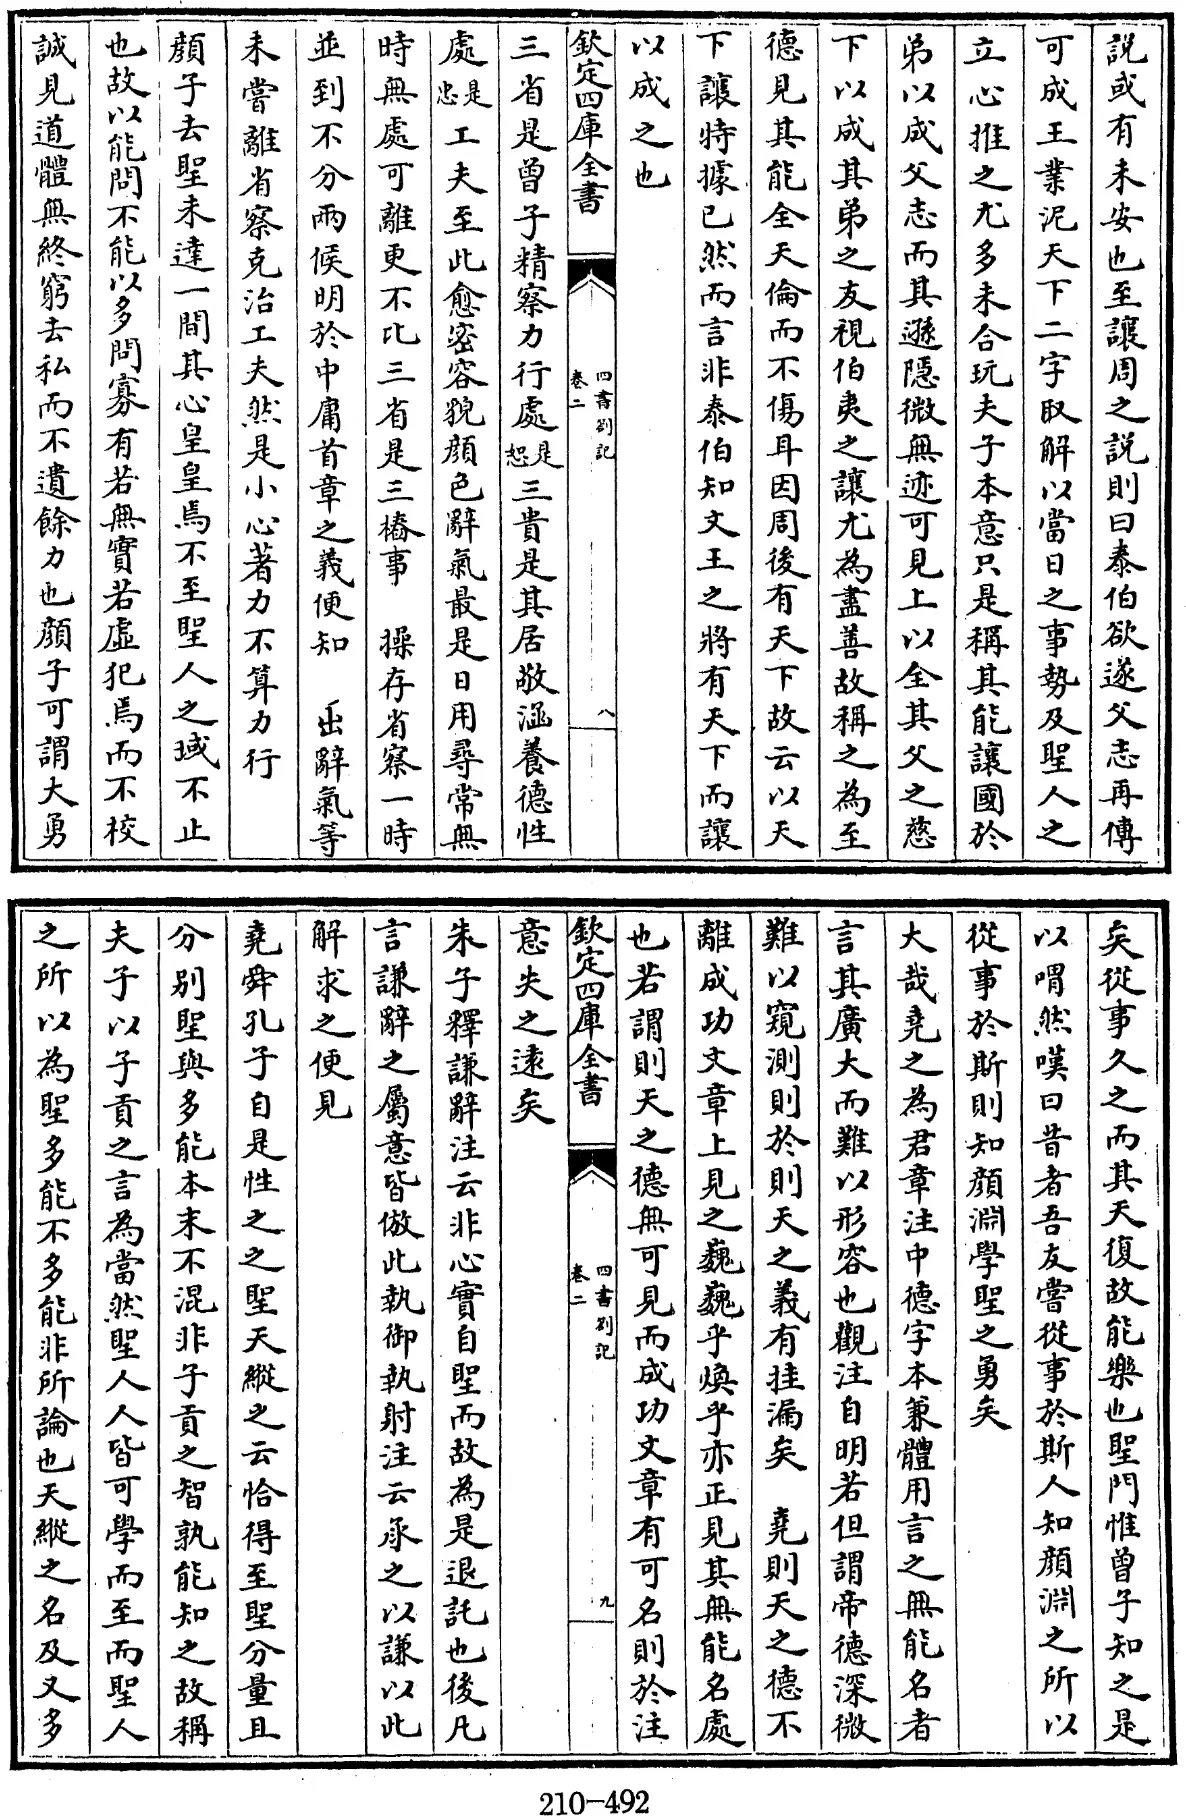 說或有未安也至讓周之説則曰泰伯欲遂父志再傳
可成王業泥天下二字取解以當日之事勢及聖人之
立心推之尤多未合玩夫子本意只是稱其能讓國於
弟以成父志而其遜隱微無迹可見上以全其父之慈
下以成其弟之友視伯夷之讓尤為盡善故稱之為至
德見其能全天倫而不傷耳因周後有天下故云以天
下讓特據已然而言非泰伯知文王之將有天下而讓
以成之也
欽定四庫全書
四書劄記
卷二
八
三省是曾子精察力行處是恕三貴是其居敬涵養德性
處是忠工夫至此愈密容貌顔色辭氣最是日用尋常無
時無處可離更不比三省是三樁事 操存省察一時
並到不分兩候明於中庸首章之義便知 出辭氣等
未嘗離省察克治工夫然是小心著力不算力行
顔子去聖未達一間其心皇皇焉不至聖人之域不止
也故以能問不能以多問寡有若無實若虛犯焉而不校
誠見道體無終窮去私而不遺餘力也顔子可謂大勇
矣從事久之而其天復故能樂也聖門惟曾子知之是
以喟然嘆曰昔者吾友嘗從事於斯人知顔淵之所以
從事於斯則知顔淵學聖之勇矣
大哉堯之為君章注中德字本兼體用言之無能名者
言其廣大而難以形容也觀注自明若但謂帝德深微
難以窺測則於則天之義有挂漏矣 堯則天之德不
離成功文章上見之巍巍乎煥乎亦正見其無能名處
也若謂則天之德無可見而成功文章有可名則於注
欽定四庫全書
四書劄記
卷二
九
意失之遠矣
朱子釋謙辭注云非心實自聖而故為是退託也後凡
言謙辭之屬意皆倣此執御執射注云承之以謙以此
解求之便見
堯舜孔子自是性之之聖天縱之云恰得至聖分量且
分别聖與多能本末不混非子貢之智孰能知之故稱
夫子以子貢之言為當然聖人人皆可學而至而聖人
之所以為聖多能不多能非所論也天縱之名及又多
210-492